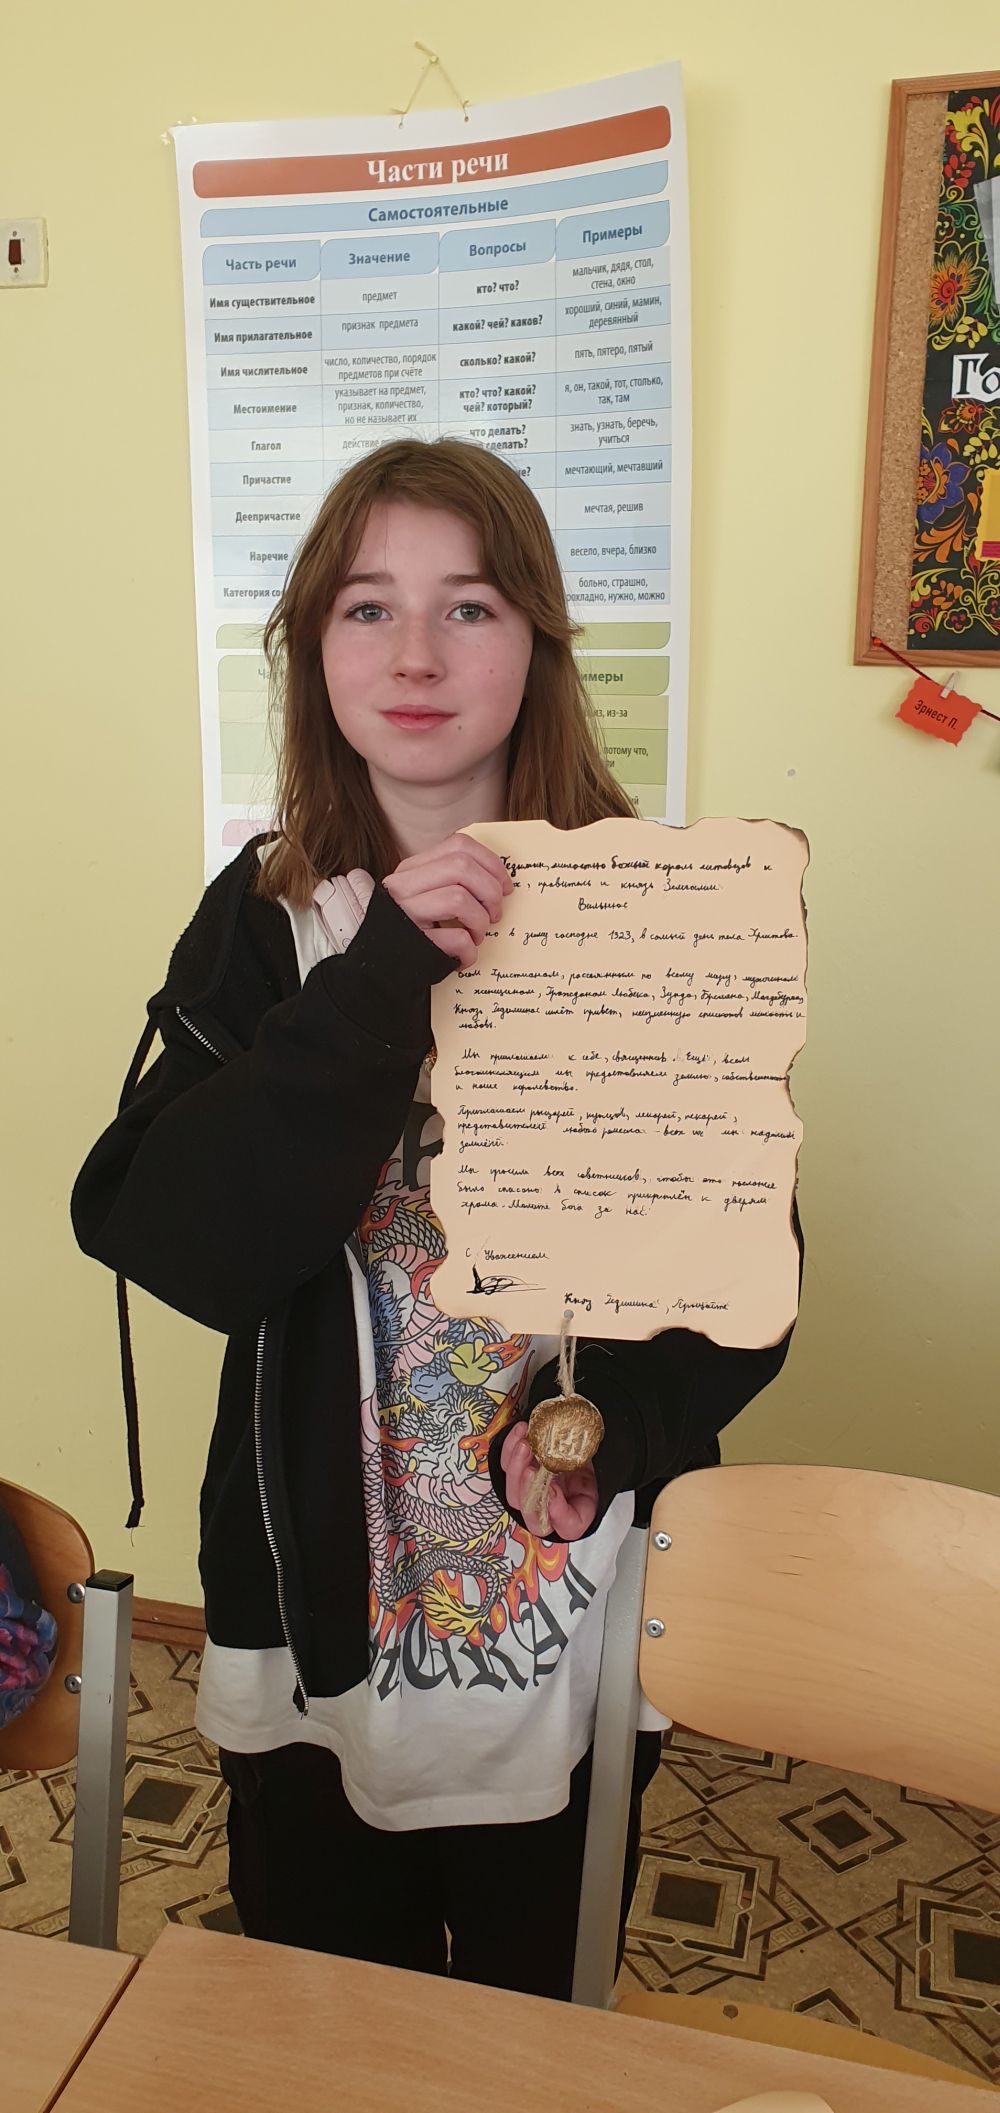 Части речи
Самостоятельные
Часть речи Значение Вопросы Примеры
Имя существительное предмет кто? что? мальчик, дядя, стол,
стена, окно
Имя прилагательное признак предмета какой? чей? каков? хороший, синий, мамин,
деревянный
Имя числительное число, количество, порядок
предметов при счёте сколько? какой? пять, пятеро, пятый
Местоимение указывает на предмет,
признак, количество,
но не называет их кто? что? какой?
чей? который? я, он, такой, тот, столько,
так, там
Глагол действие что делать?
сделать? знать, узнать, беречь,
учиться
Причастие мечтающий, мечтавший
Деепричастие мечтая, решив
Наречие весело, вчера, близко
Категория больно, страшно,
нужно, можно
из-за
потому что,
Го
Эрнест П.
Гедимин, милостью божьей король литовцев и
правитель и князь Земгалии
Вильнюс
в зиму господне 1323, в самый день тела Христова.
Всем Христианам, рассеянным по всему миру, мужчинам
и женщинам, Гражданам Любека, Зунда, Бремена, Магдебурга,
Князь шлёт привет,
и
любовь.
Мы приглашаем к себе, священнов Ещё, всем
мы предоставляем землю,
и наше королевство.
Приглашаем рыцарей, купцов, лекарей, пекарей,
представителей любого ремесла - всех мы наделим
землёй.
Мы просим всех советников, чтобы это послание
было списано в список прикреплён к дверям
храма. Молите бога за нас.
С Уважением
Князь